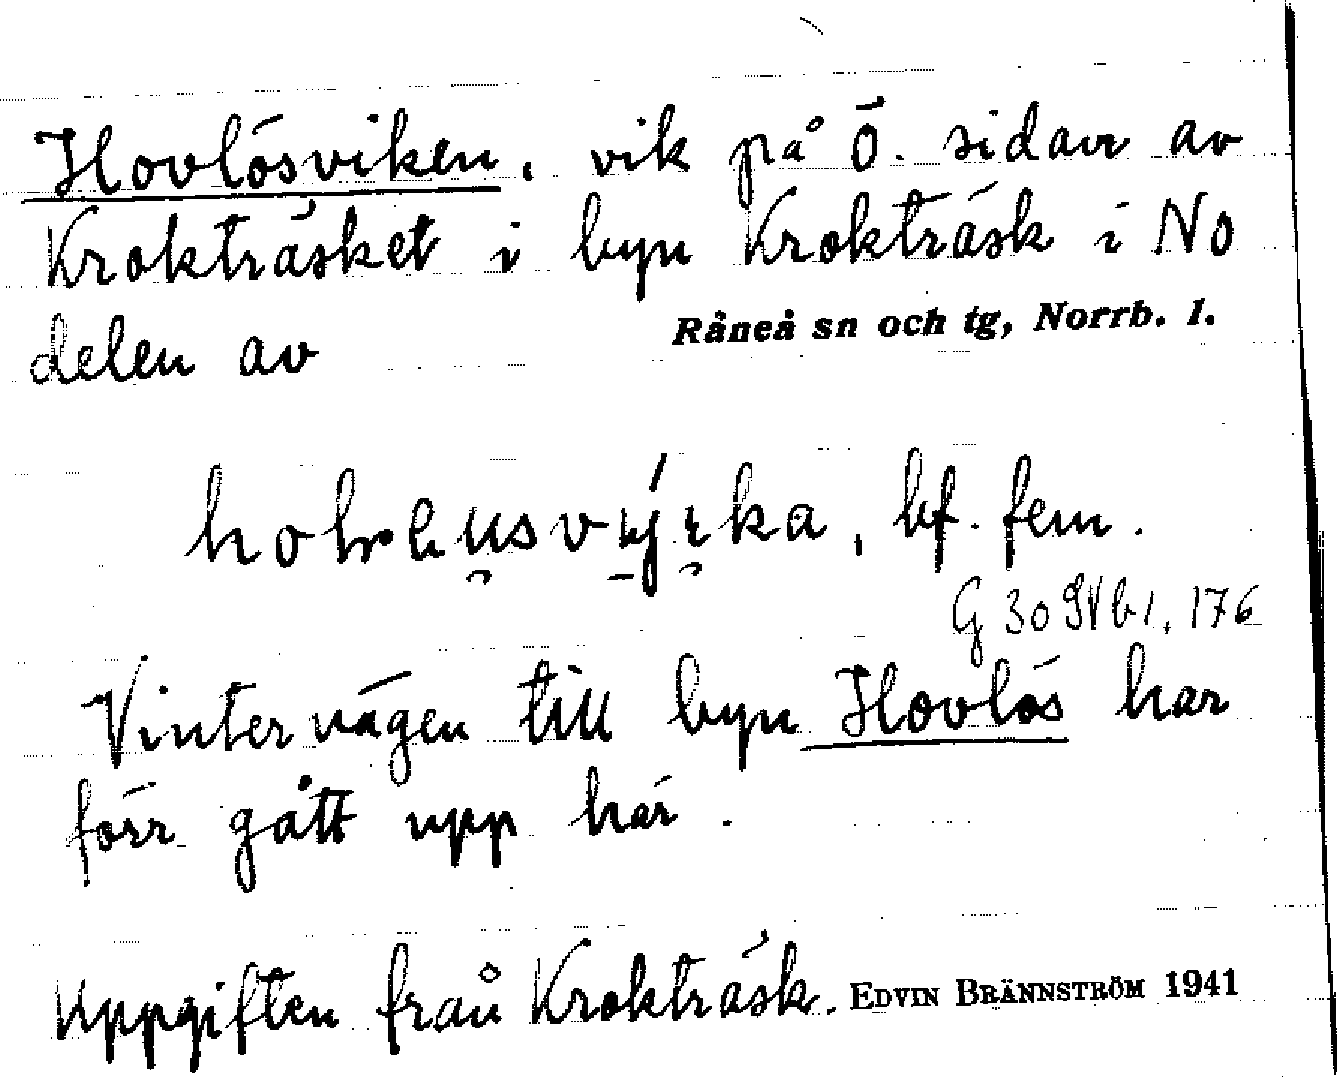 Hovlösviken, vik på Ö. sidan av
Krokträsket i byn Krokträsk i NO
delen av Råneå sn och tg, Norrb. l.
bf. fem.
G 30
176
Vintervägen till byn Hovlös har
förr gått upp här.
Uppgiften från Krokträsk. EDVIN BRÄNNSTRÖM 1941